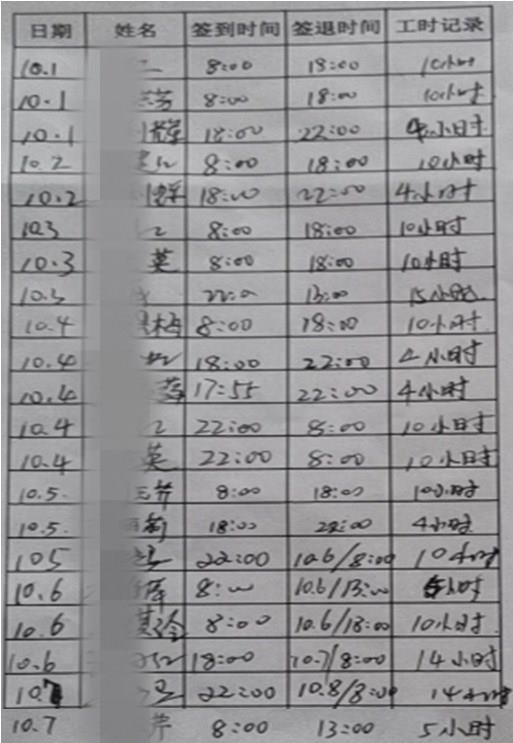 日期 姓名 签到时间 签退时间 工时记录
10.1 8:00 18:00 10小时
10.1 芳 8:00 18:00 10小时
10.1 辉 18:00 22:00 4小时
10.2 8:00 18:00 10小时
10.2 18:00 22:00 4小时
10.3 8:00 18:00 10小时
10.3 英 8:00 18:00 10小时
10.3 22:0 13:00 15小时
10.4 梅 8:00 18:00 10小时
10.4 18:00 22:00 4小时
10.4 17:55 22:00 4小时
10.4 22:00 8:00 10小时
10.4 英 22:00 8:00 10小时
10.5. 芹 8:00 18:00 10小时
10.5. 18:00 22:00 4小时
105 22:00 10.6/8:00 10小时
10.6 8:00 10.6/13:00 5小时
10.6 8:00 10.6/18:00 10小时
10.6 18:00 10.7/8:00 14小时
10.7 22:00 10.8/8:00 14小时
10.7 芹 8:00 13:00 5小时